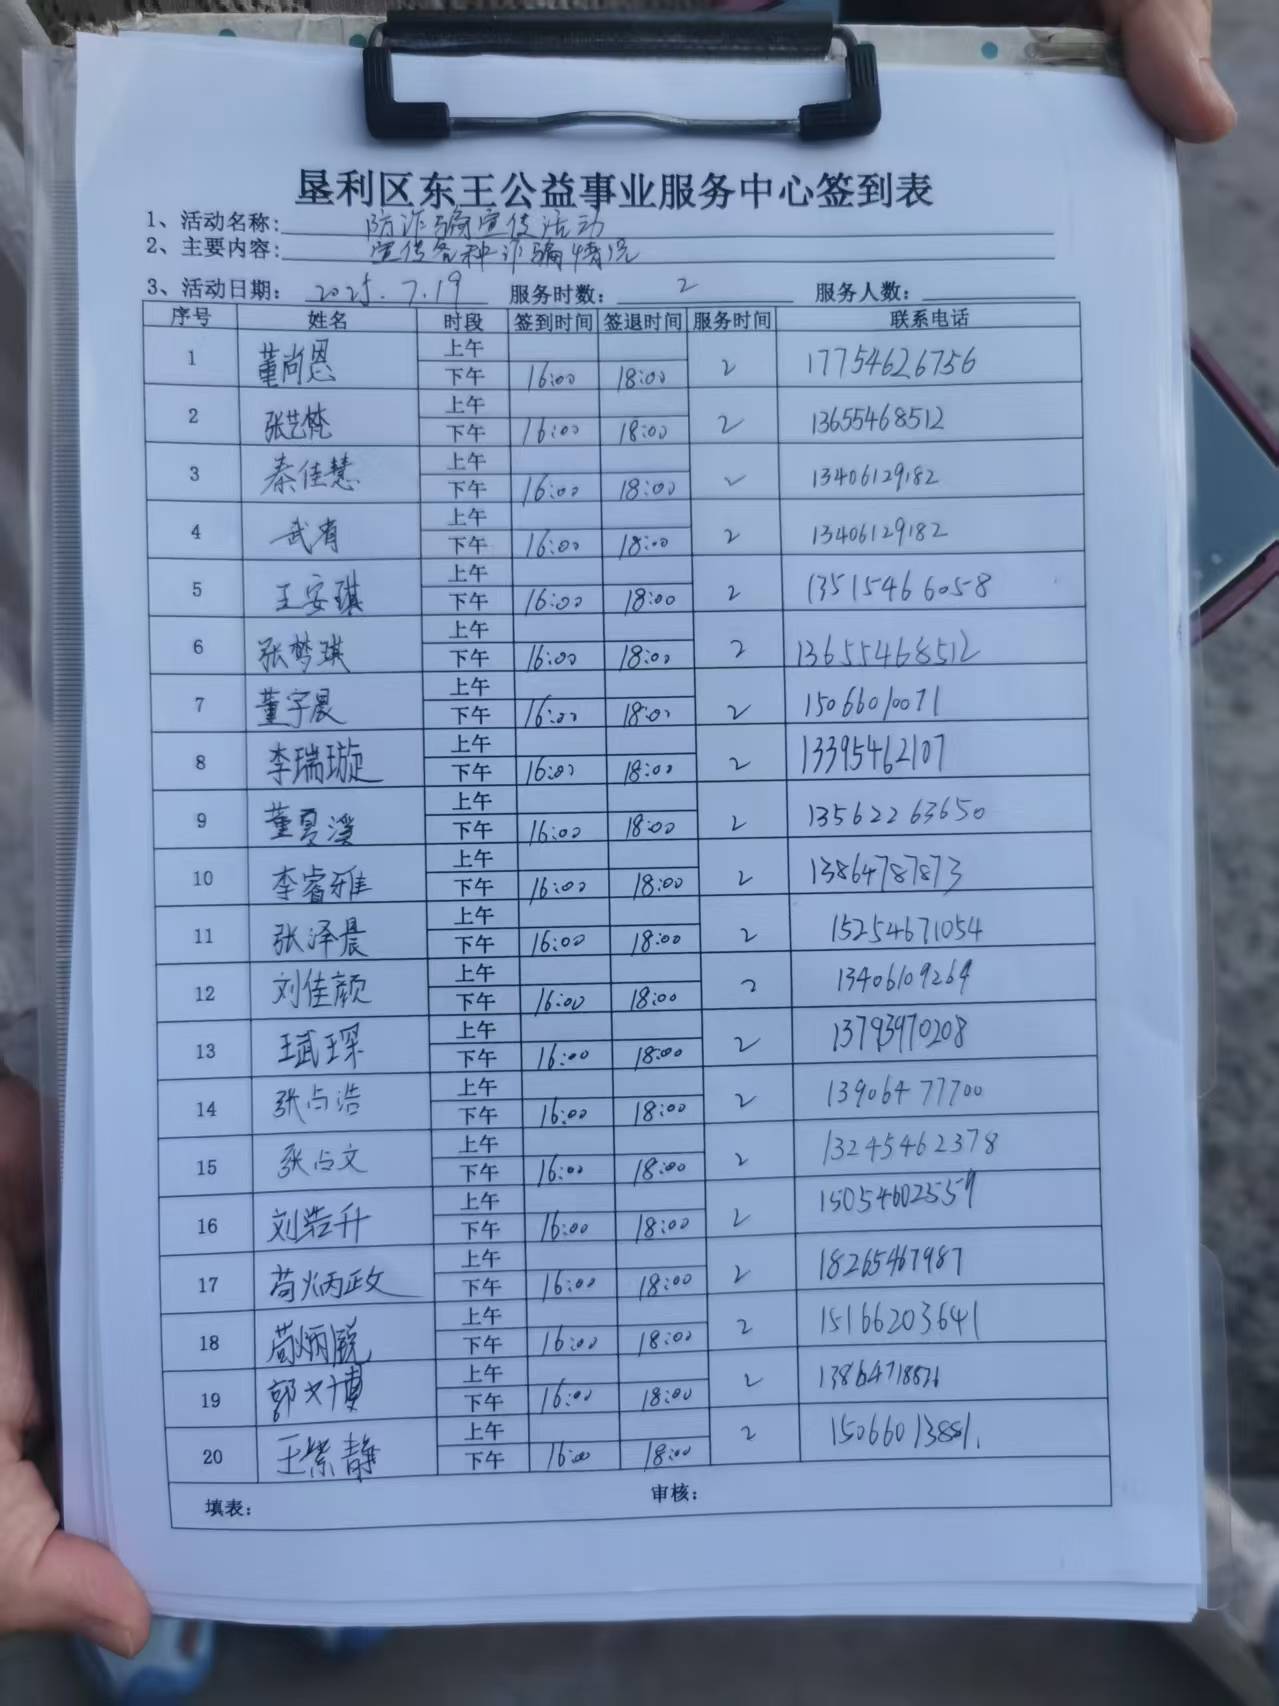 垦利区东王公益事业服务中心签到表
1、活动名称: 防诈骗宣传活动
2、主要内容: 宣传各种诈骗情况
3、活动日期: 2025.7.19 服务时数: 2 服务人数:
序号 姓名 时段 签到时间 签退时间 服务时间 联系电话
1 董尚恩 上午 下午 16:00 18:00 2 17754626756
2 张艺梵 上午 下午 16:00 18:00 2 13655468512
3 秦佳慧 上午 下午 16:00 18:00 2 13406129182
4 武宥 上午 下午 16:00 18:00 2 13406129182
5 王安琪 上午 下午 16:00 18:00 2 13515466058
6 张梦琪 上午 下午 16:00 18:00 2 13655468512
7 董宇晨 上午 下午 16:00 18:00 2 15066010071
8 李瑞璇 上午 下午 16:00 18:00 2 13395462107
9 董夏溪 上午 下午 16:00 18:00 2 13562263650
10 李睿雅 上午 下午 16:00 18:00 2 13864787873
11 张泽晨 上午 下午 16:00 18:00 2 15254671054
12 刘佳颜 上午 下午 16:00 18:00 2 13406109269
13 王斌琛 上午 下午 16:00 18:00 2 13793970208
14 张占浩 上午 下午 16:00 18:00 2 13906477700
15 张占文 上午 下午 16:00 18:00 2 13245462378
16 刘浩升 上午 下午 16:00 18:00 2 15054602559
17 苟炳政 上午 下午 16:00 18:00 2 18265467987
18 苟炳 上午 下午 16:00 18:00 2 15166203641
19 郭文博 上午 下午 16:00 18:00 2 13864718826
20 王紫静 上午 下午 16:00 18:00 2 15066013881.
填表: 审核: